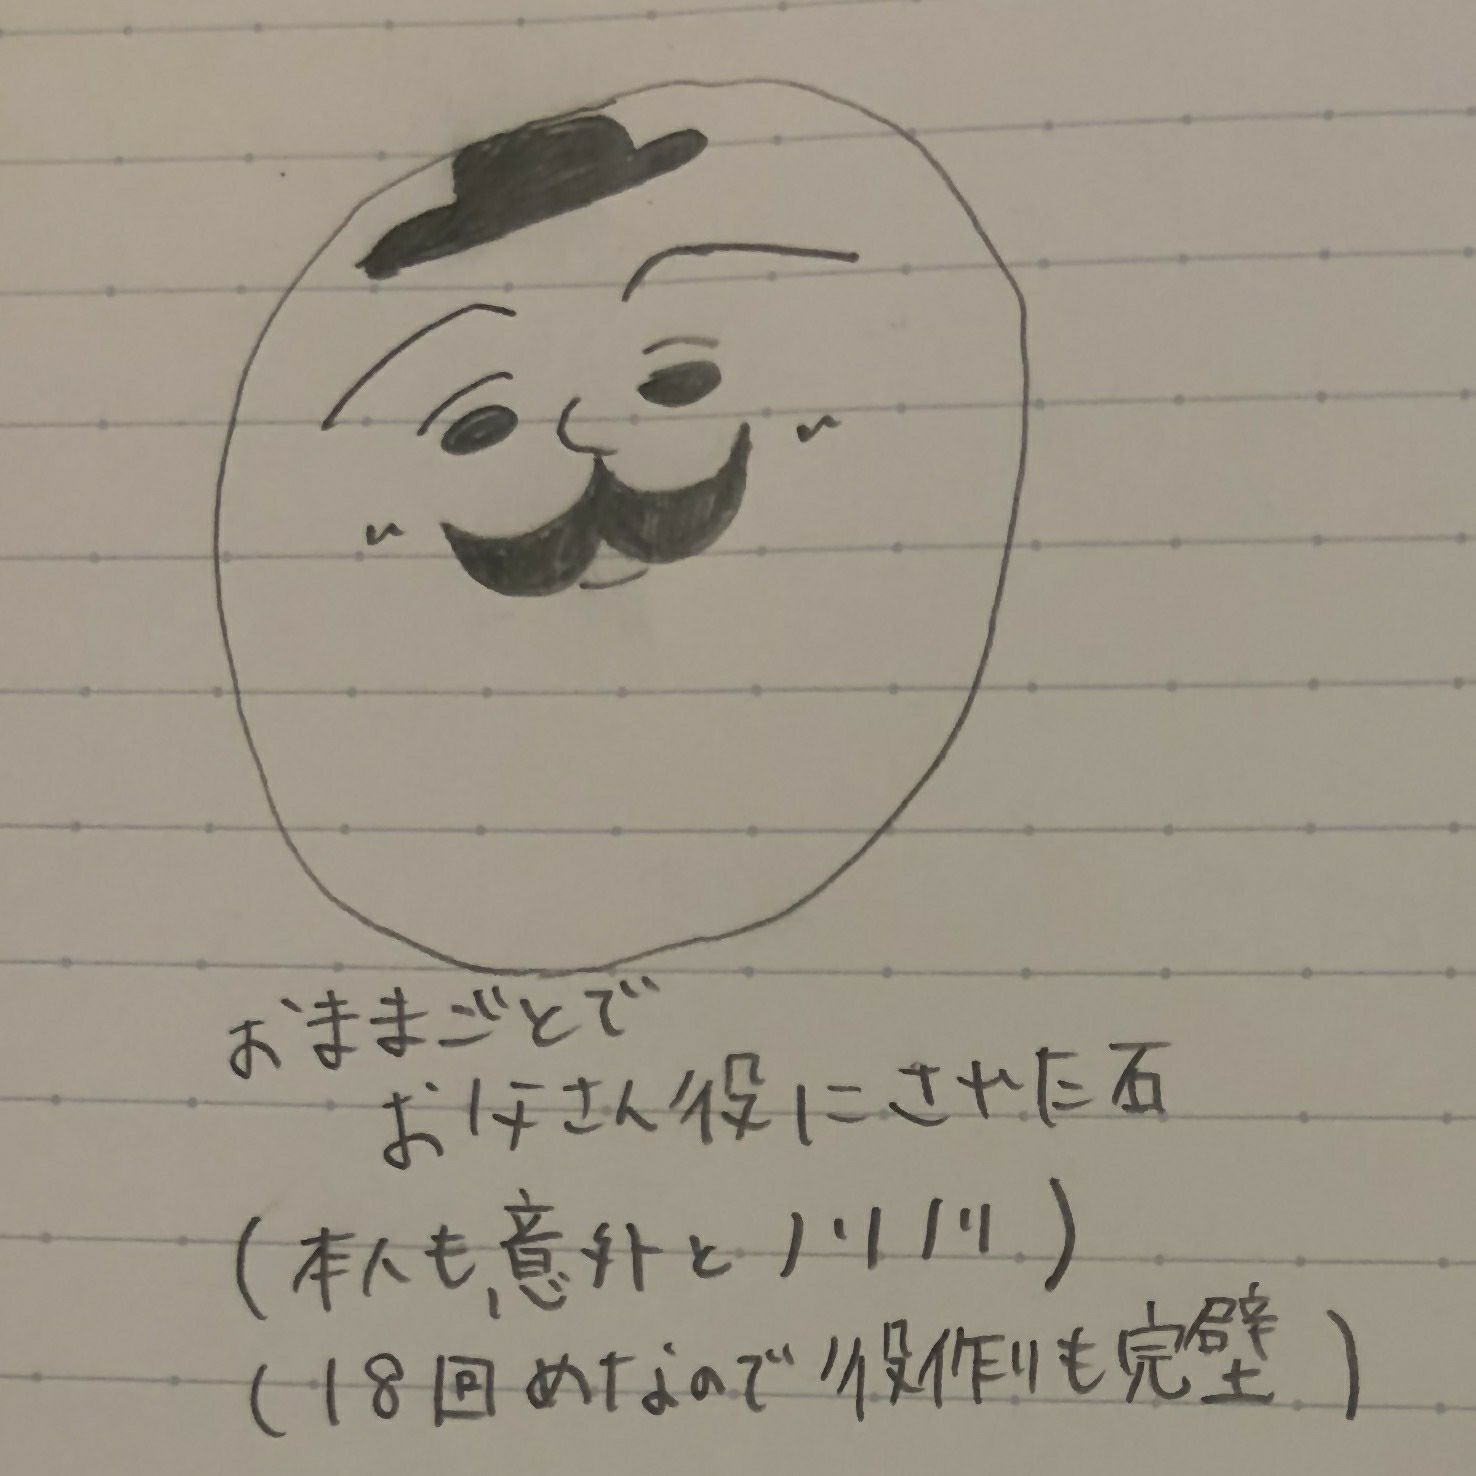 おままごとで
お父さん役にされた石
(本人も、意外とノリノリ)
(18回めなので役作りも完壁)